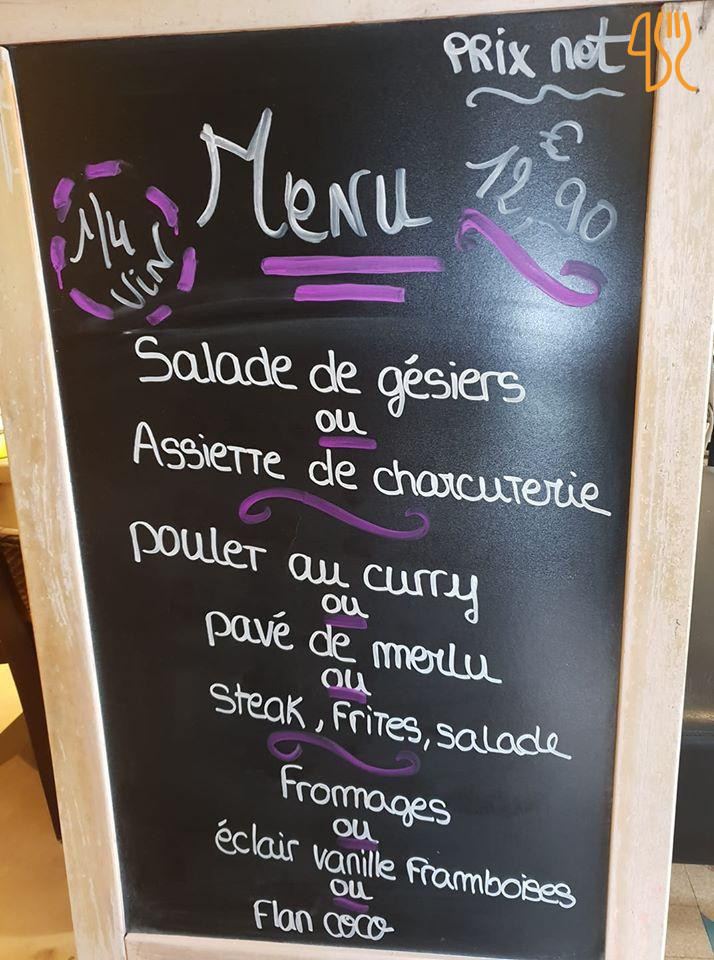 PRIX net
€
12,90
Menu
1/4
VIN
Salade de gésiers
ou
Assiette de charcuterie
poulet au curry
ou
pavé de merlu
ou
steak, frites, salade
Fromages
ou
éclair vanille Framboises
ou
Flan coco